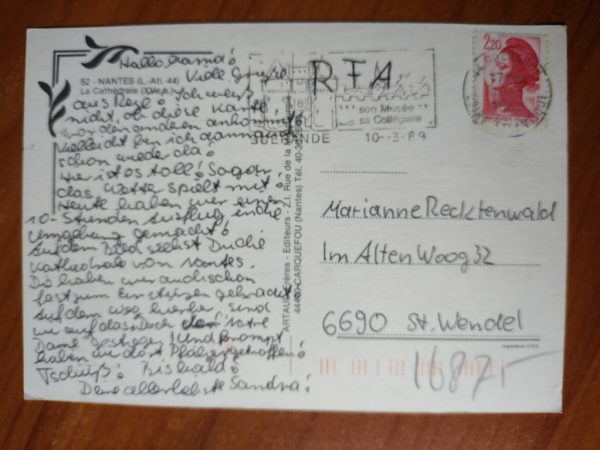 Hallo Mama!
52 - NANTES (L.-Atl.-44)
La Cathédrale (XVe s.)
Viele Grüße
aus Rezé! Ich weiß
nicht, ob diese Karte
vor den anderen ankommt.
Vielleicht bin ich dann auch
schon wieder da!
Hier ist es toll! Sogar
das Wetter spielt mit!
Heute haben wir einen
10-Stunden Ausflug in die
Umgebung gemacht!
Auf dem Bild siehst Du die
Kathedrale von Nantes.
Die haben wir auch schon
fast zum Einstürzen gebracht.
Auf dem Weg hierher sind
wir auf das Dach der "Notre
Dame" gestiegen! Und prompt
haben wir dort Pfälzer getroffen!
Tschüß! Bis bald!
Deine allerliebste Sandra!
ARTAUD Frères - Editeurs - Z.I. Rue de la Métallurgie
44470 CARQUEFOU (Nantes) Tél.
RFA
son Musée
sa Collégiale
GUERANDE 10--3-89
2,20
Marianne Recktenwald
Im Alten Woog 32
6690 St. Wendel
16875